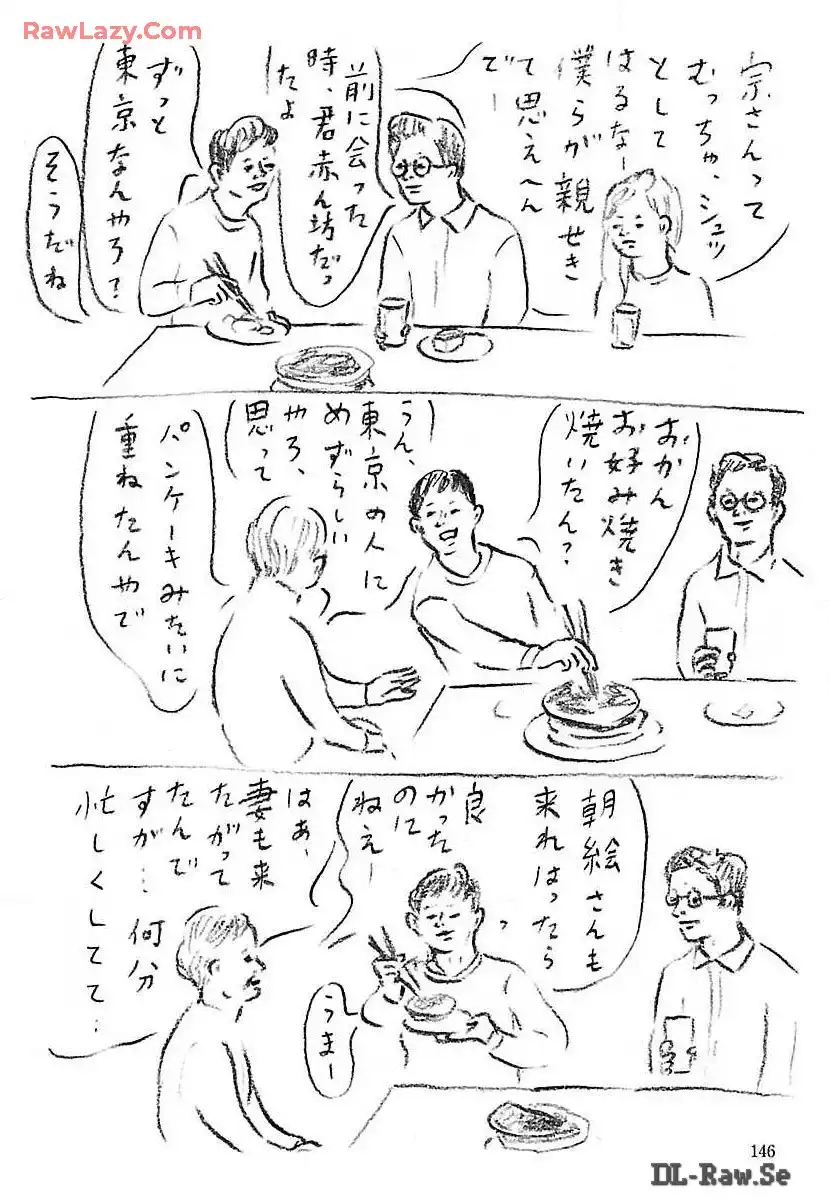 RawLazy.Com
宗さんって
むっちゃ、シュッ
として
はるなー
僕らが親せき
て思えへん
でー
前に会った
時、君赤ん坊だっ
たよ
ずっと
東京なんやろ？
そうだね
おかん
お好み焼き
焼いたん？
うん、
東京の人に
めずらしい
やろ、
思って
パンケーキみたいに
重ねたんやで
朝絵さんも
来れはったら
良
かった
のに
ねえー
はあ、
妻も来
たがって
たんで
すが…何分
忙しくしてて…
うまー
146
DL-Raw.Se